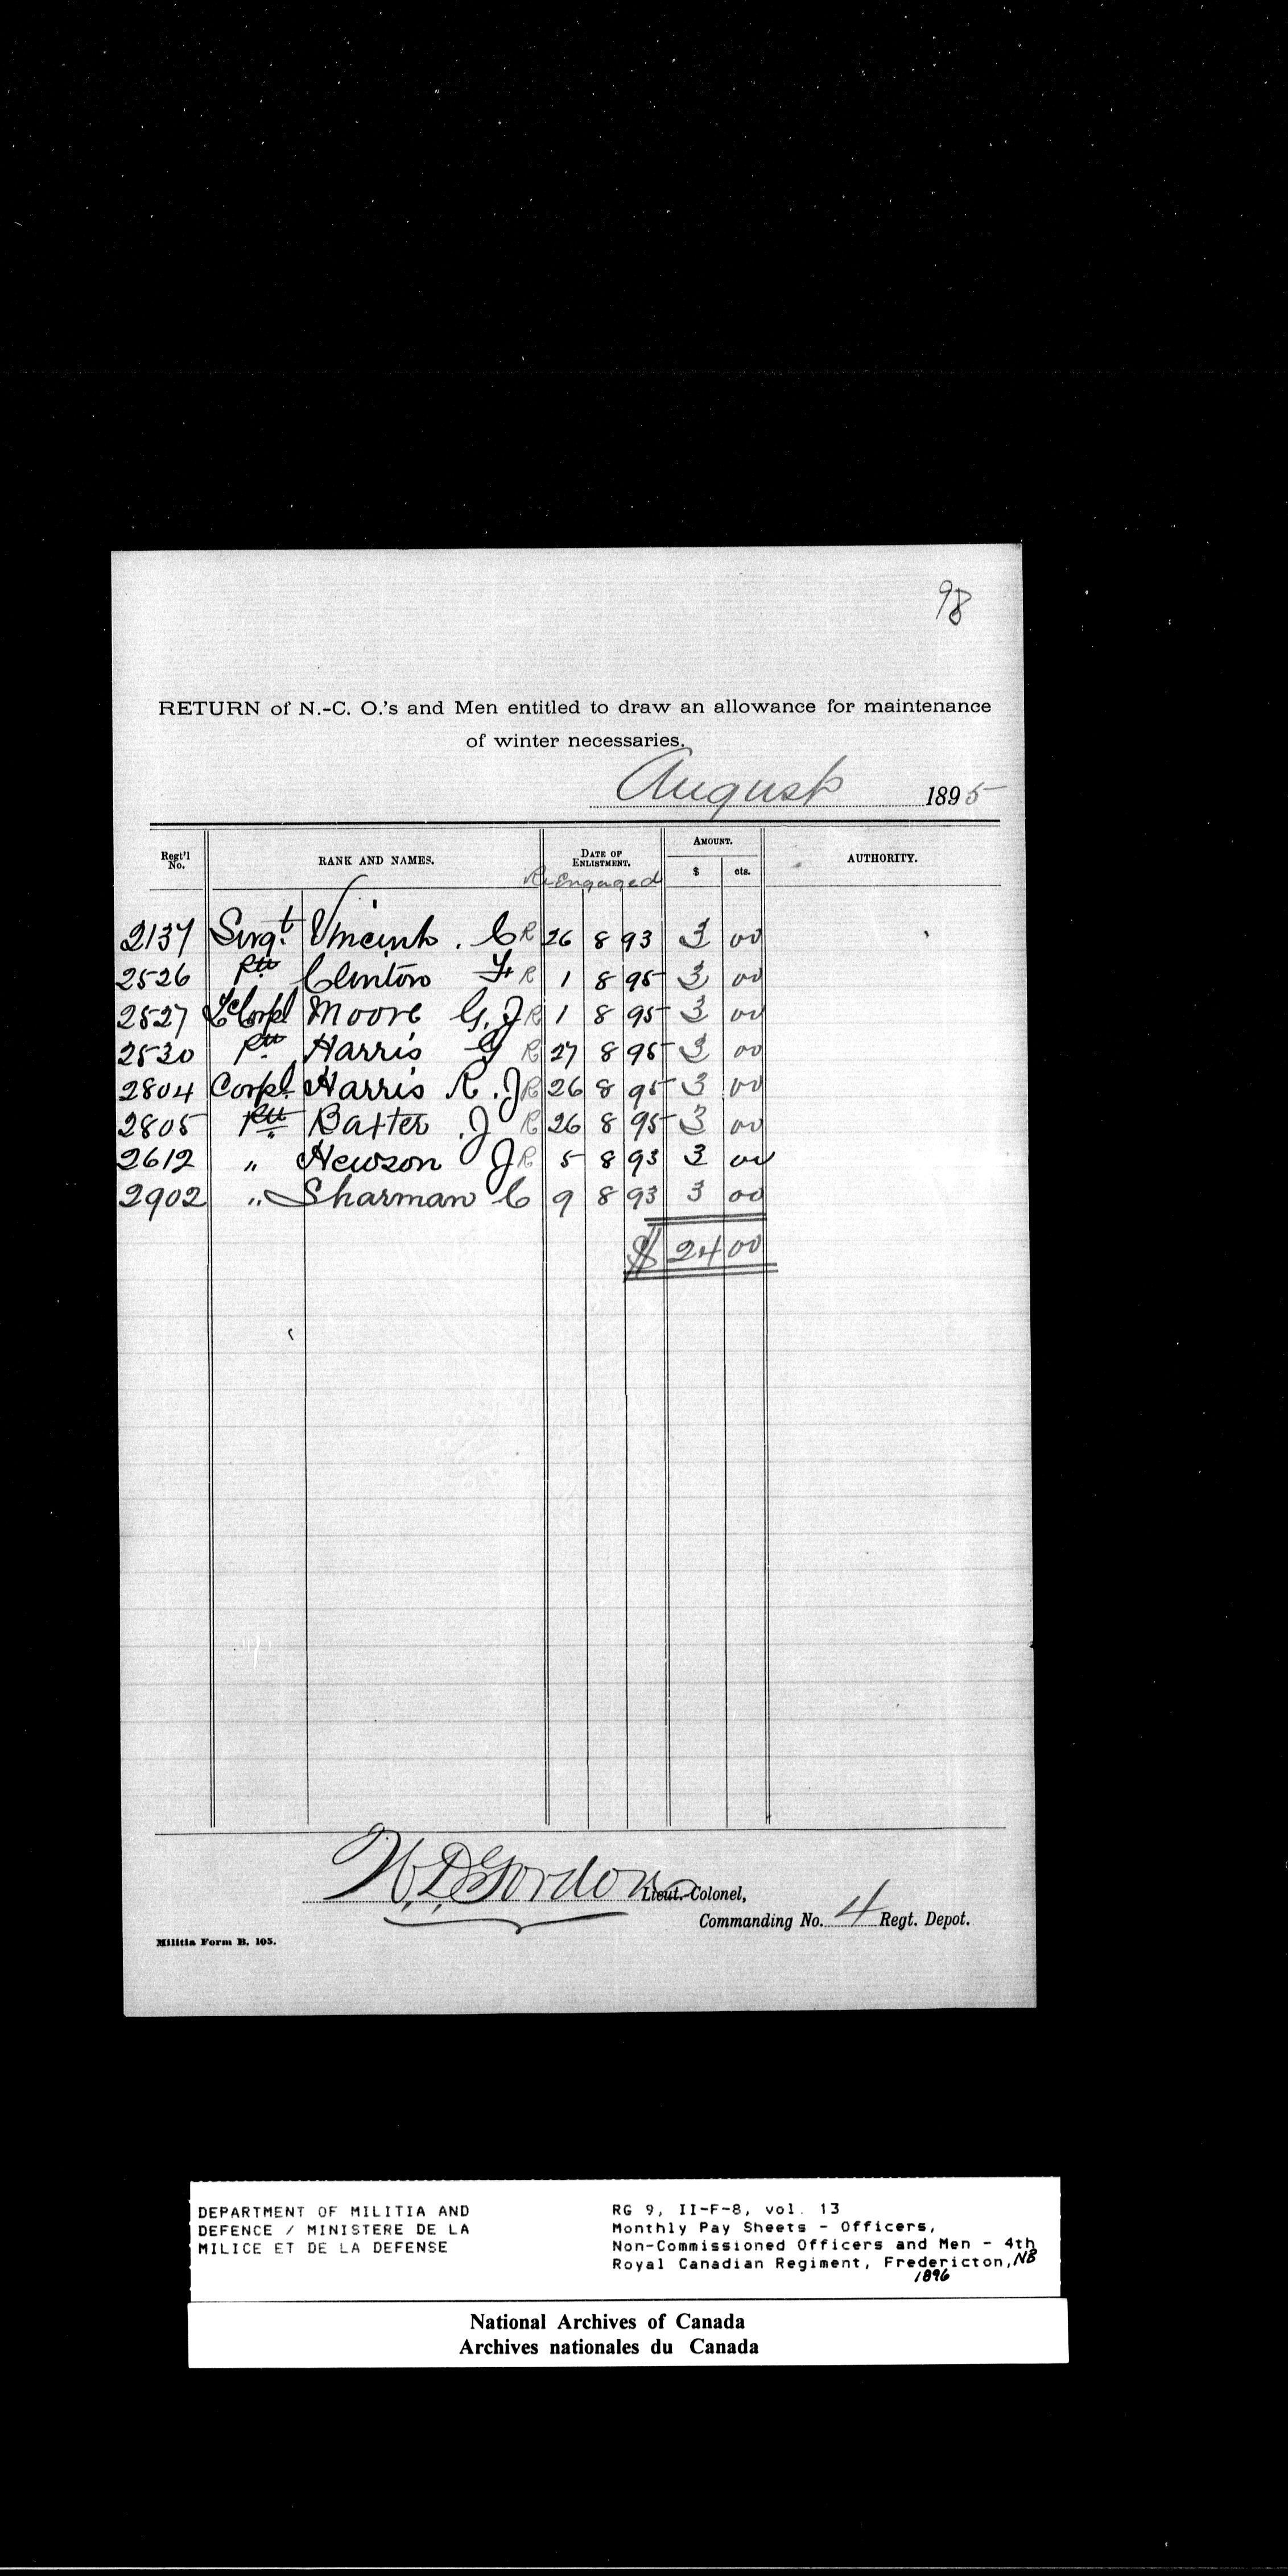 98
RETURN of N.-C. O.'s and Men entitled to draw an allowance for maintenance
of winter necessaries.
August 1895
Regt'l No. RANK AND NAMES. DATE OF ENLISTMENT. AMOUNT. $ cts. AUTHORITY.
Re Engaged
2137 Sergt. Vincent . C R 26 8 93 3 00
2526 Pte Clinton F R 1 8 95 3 00
2527 L Corpl Moore G. J R 1 8 95 3 00
2530 Pte Harris G R 27 8 95 3 00
2804 Corpl. Harris R . J R 26 8 95 3 00
2805 Pte Baxter . J R 26 8 95 3 00
2612 " Hewson J R 5 8 93 3 00
2902 " Sharman C 9 8 93 3 00
$ 24 00
W. D. Gordon Lieut.-Colonel,
Commanding No. 4 Regt. Depot.
Militia Form B. 105.
DEPARTMENT OF MILITIA AND
DEFENCE / MINISTERE DE LA
MILICE ET DE LA DEFENSE
RG 9, II-F-8, vol. 13
Monthly Pay Sheets - Officers,
Non-Commissioned Officers and Men - 4th
Royal Canadian Regiment, Fredericton, NB
1896
National Archives of Canada
Archives nationales du Canada